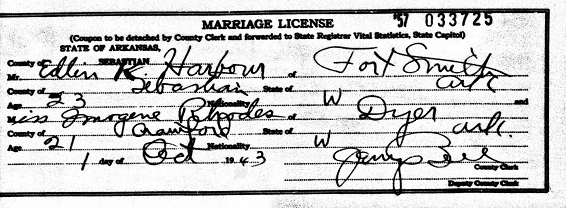 MARRIAGE LICENSE '57 033725
(Coupon to be detached by County Clerk and forwarded to State Registrar Vital Statistics, State Capitol)
STATE OF ARKANSAS,
County of SEBASTIAN
Mr. Edlin K. Harbour of Fort Smith
County of Sebastian State of Ark
Age 23 Nationality W and
Miss Imogene Rhodes of Dyer
County of Crawford State of Ark.
Age 21 Nationality W
1 day of Oct 1943
County Clerk
Deputy County Clerk